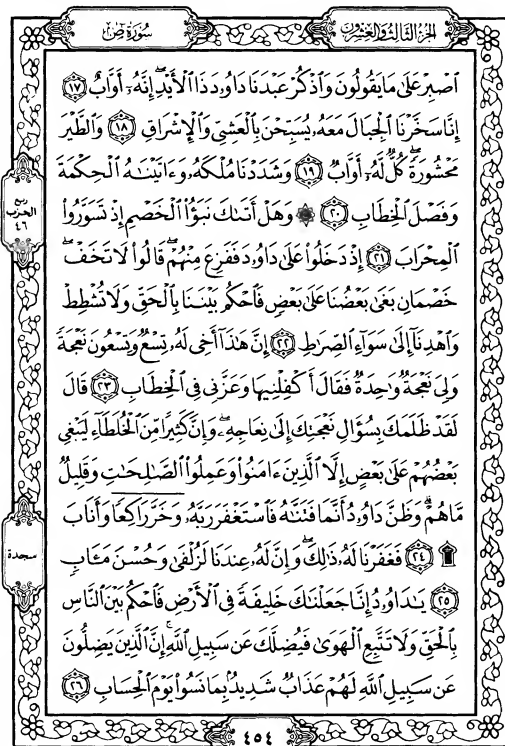 الجزء الثالث والعشرون
سورة ص
ٱصْبِرْ عَلَىٰ مَا يَقُولُونَ وَٱذْكُرْ عَبْدَنَا دَاوُۥدَ ذَا ٱلْأَيْدِ ۖ إِنَّهُۥٓ أَوَّابٌ ١٧
إِنَّا سَخَّرْنَا ٱلْجِبَالَ مَعَهُۥ يُسَبِّحْنَ بِٱلْعَشِىِّ وَٱلْإِشْرَاقِ ١٨ وَٱلطَّيْرَ
مَحْشُورَةً ۖ كُلٌّ لَّهُۥٓ أَوَّابٌ ١٩ وَشَدَدْنَا مُلْكَهُۥ وَءَاتَيْنَـٰهُ ٱلْحِكْمَةَ
وَفَصْلَ ٱلْخِطَابِ ٢٠ ۞ وَهَلْ أَتَىٰكَ نَبَؤُا۟ ٱلْخَصْمِ إِذْ تَسَوَّرُوا۟
ٱلْمِحْرَابَ ٢١ إِذْ دَخَلُوا۟ عَلَىٰ دَاوُۥدَ فَفَزِعَ مِنْهُمْ ۖ قَالُوا۟ لَا تَخَفْ ۖ
خَصْمَانِ بَغَىٰ بَعْضُنَا عَلَىٰ بَعْضٍ فَٱحْكُم بَيْنَنَا بِٱلْحَقِّ وَلَا تُشْطِطْ
وَٱهْدِنَآ إِلَىٰ سَوَآءِ ٱلصِّرَٰطِ ٢٢ إِنَّ هَـٰذَآ أَخِى لَهُۥ تِسْعٌ وَتِسْعُونَ نَعْجَةً
وَلِىَ نَعْجَةٌ وَٰحِدَةٌ فَقَالَ أَكْفِلْنِيهَا وَعَزَّنِى فِى ٱلْخِطَابِ ٢٣ قَالَ
لَقَدْ ظَلَمَكَ بِسُؤَالِ نَعْجَتِكَ إِلَىٰ نِعَاجِهِۦ ۖ وَإِنَّ كَثِيرًا مِّنَ ٱلْخُلَطَآءِ لَيَبْغِى
بَعْضُهُمْ عَلَىٰ بَعْضٍ إِلَّا ٱلَّذِينَ ءَامَنُوا۟ وَعَمِلُوا۟ ٱلصَّـٰلِحَـٰتِ وَقَلِيلٌ
مَّا هُمْ ۗ وَظَنَّ دَاوُۥدُ أَنَّمَا فَتَنَّـٰهُ فَٱسْتَغْفَرَ رَبَّهُۥ وَخَرَّ رَاكِعًا وَأَنَابَ
۩ ٢٤ فَغَفَرْنَا لَهُۥ ذَٰلِكَ ۖ وَإِنَّ لَهُۥ عِندَنَا لَزُلْفَىٰ وَحُسْنَ مَـَٔابٍ
٢٥ يَـٰدَاوُۥدُ إِنَّا جَعَلْنَـٰكَ خَلِيفَةً فِى ٱلْأَرْضِ فَٱحْكُم بَيْنَ ٱلنَّاسِ
بِٱلْحَقِّ وَلَا تَتَّبِعِ ٱلْهَوَىٰ فَيُضِلَّكَ عَن سَبِيلِ ٱللَّهِ ۚ إِنَّ ٱلَّذِينَ يَضِلُّونَ
عَن سَبِيلِ ٱللَّهِ لَهُمْ عَذَابٌ شَدِيدٌۢ بِمَا نَسُوا۟ يَوْمَ ٱلْحِسَابِ ٢٦
ربع
الحزب
٤٦
سجدة
٤٥٤